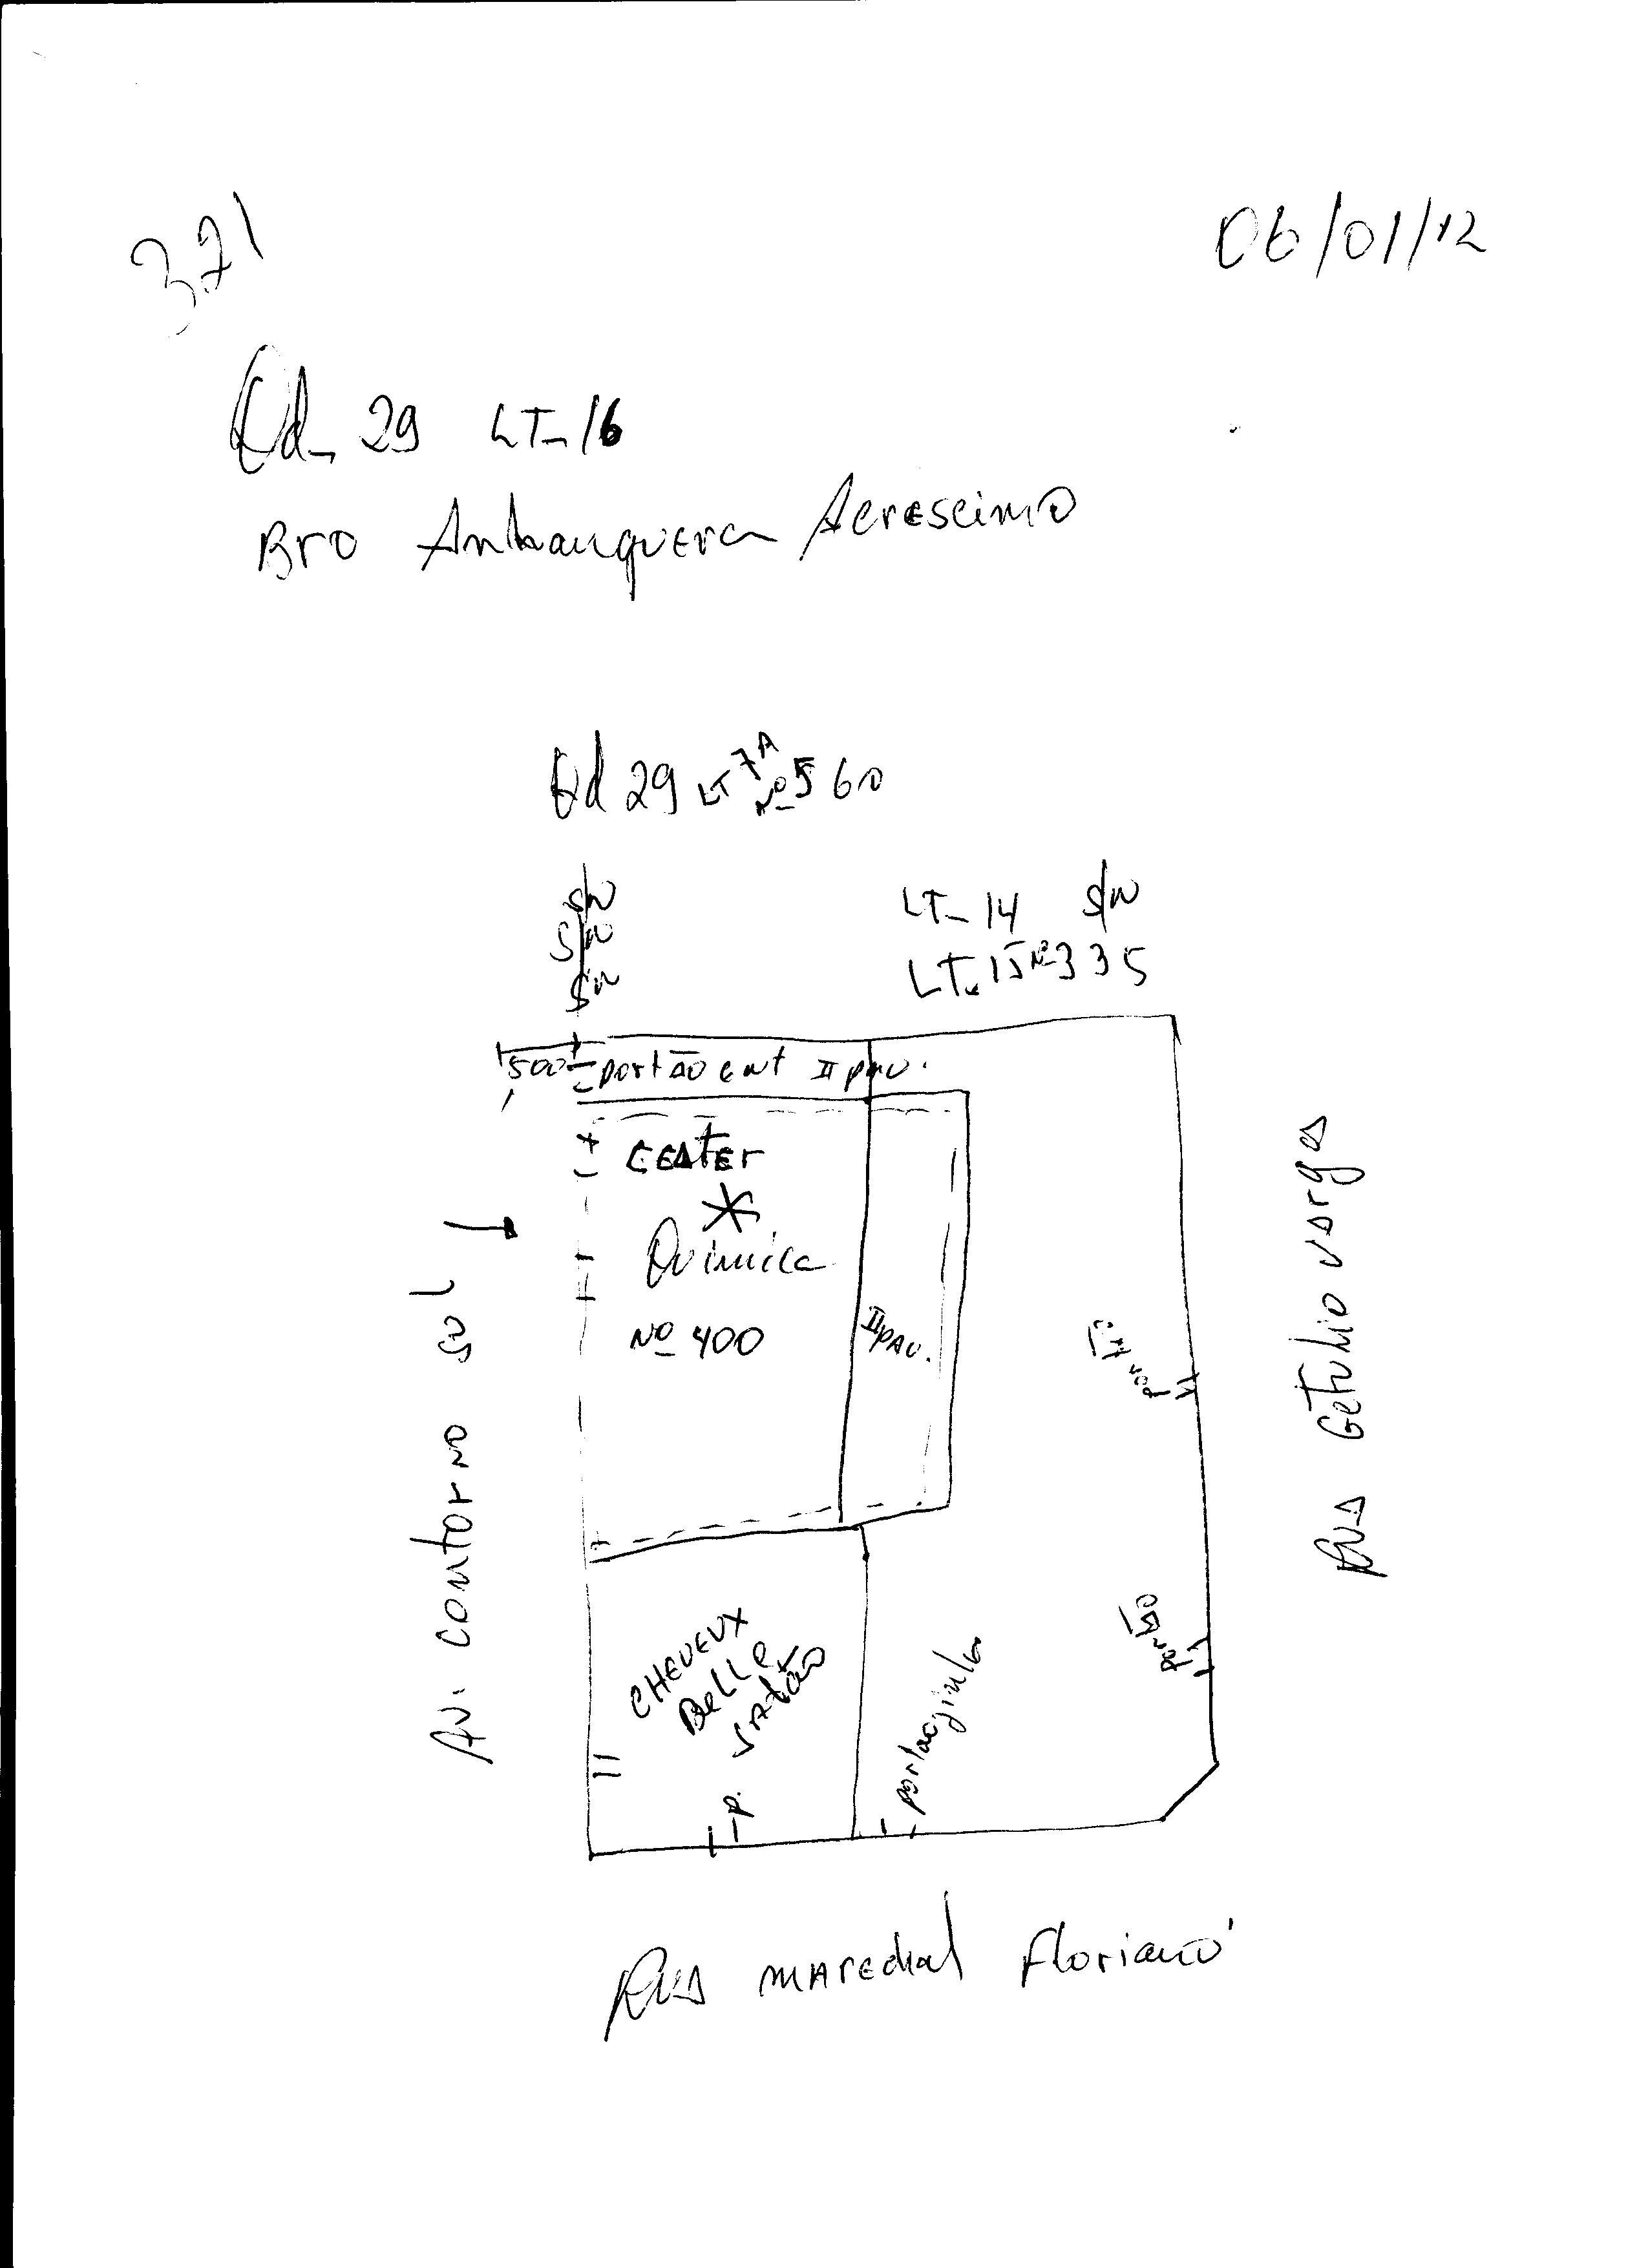 371
06/01/12
Qd_ 29 LT_16
Bro Anhanguera Acrescimo
Qd 29 LT 7A Nº 560
S/N
S/N
S/N
LT_ 14 S/N
LT_ 15 Nº 335
500
portão ent II pav.
CENTER
Quimica
Nº 400
II PAV.
Av. contorno sul
portão
Rua Getulio vargas
portão
CHEVEUX
BeLLe
P.
Rua marechal Floriano